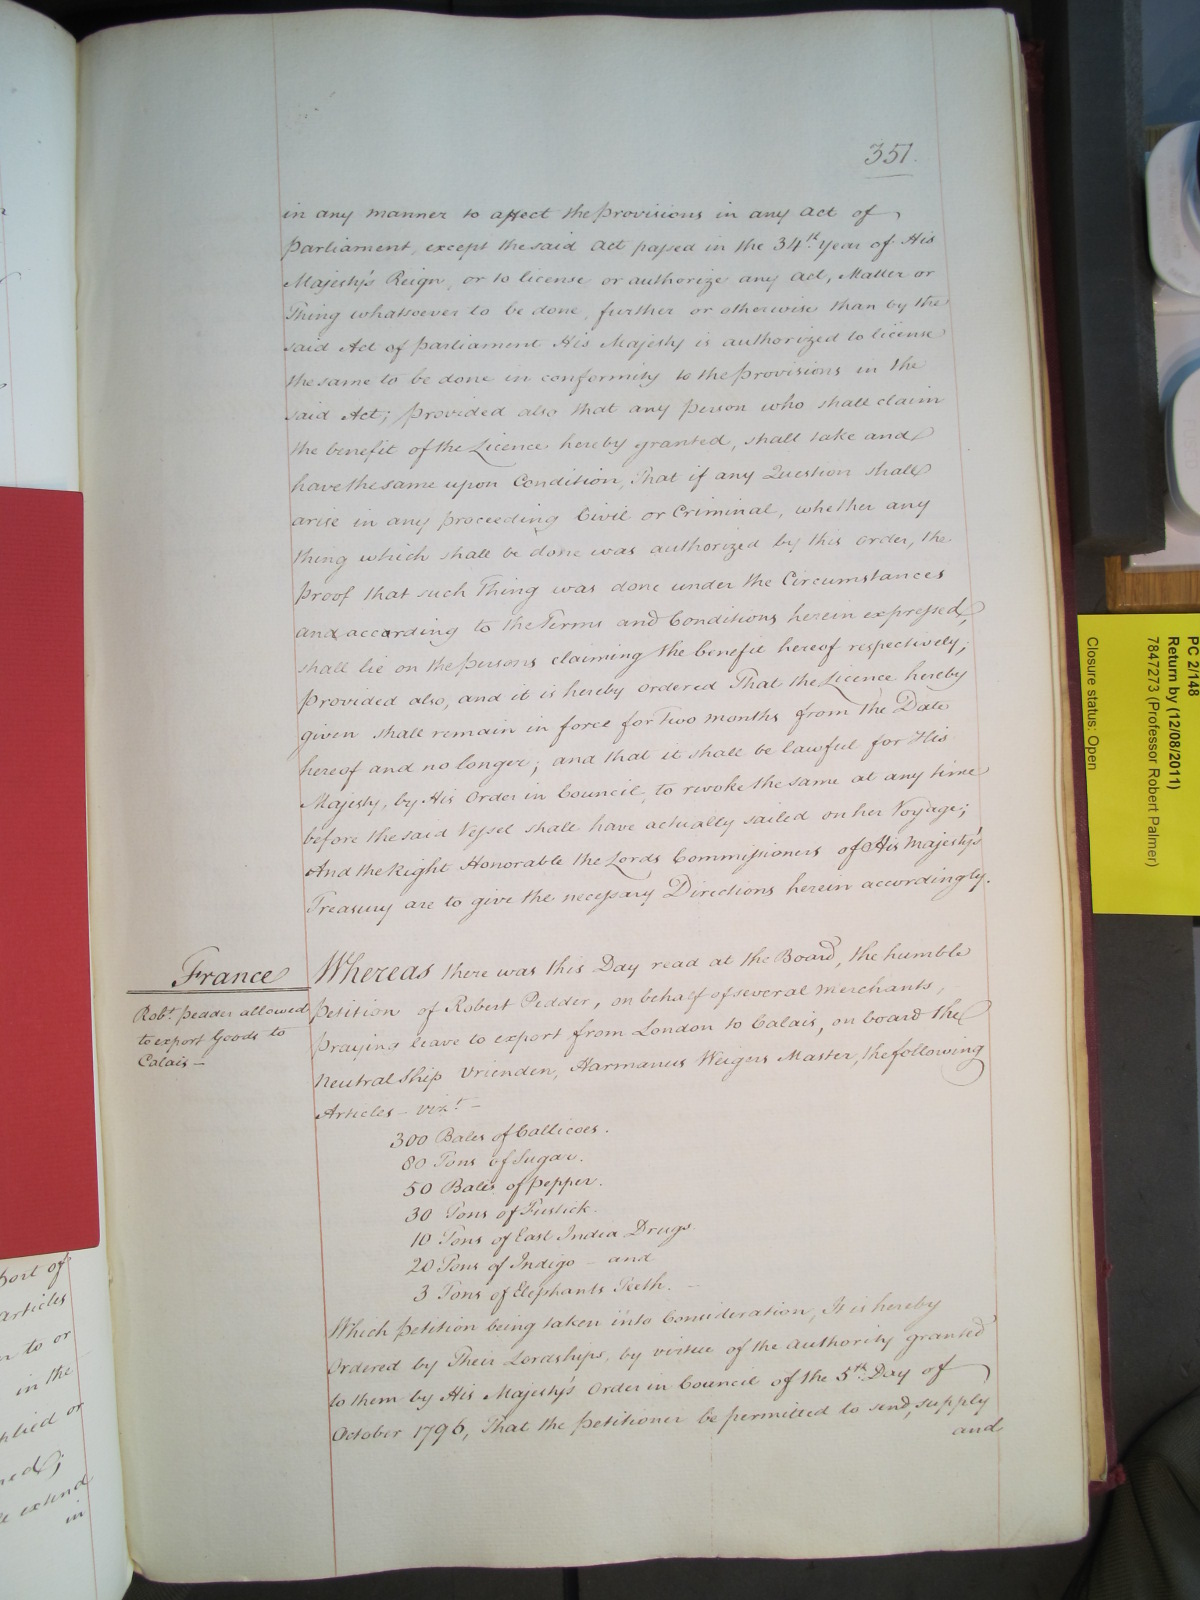 351.
in any manner to affect the Provisions in any Act of
Parliament, except the said Act passed in the 34th. Year of His
Majesty's Reign, or to license or authorize any Act, Matter or
Thing whatsoever to be done, further or otherwise than by the
said Act of Parliament His Majesty is authorized to license
the same to be done in conformity to the Provisions in the
said Act; Provided also that any Person who shall claim
the benefit of the Licence hereby granted, shall take and
have the same upon Condition, That if any Question shall
arise in any Proceeding Civil or Criminal, whether any
thing which shall be done was authorized by this Order, the
Proof that such Thing was done under the Circumstances
and according to the Terms and Conditions herein expressed,
shall lie on the Persons claiming the benefit hereof respectively;
Provided also, and it is hereby ordered That the Licence hereby
given shall remain in force for Two Months from the Date
hereof and no longer; and that it shall be lawful for His
Majesty, by His Order in Council, to revoke the same at any time
before the said Vessel shall have actually sailed on her Voyage;
And the Right Honorable the Lords Commissioners of His Majesty's
Treasury are to give the necessary Directions herein accordingly.
France
Robt. Pedder allowed
to export Goods to
Calais —
Whereas there was this Day read at the Board, the humble
Petition of Robert Pedder, on behalf of several Merchants,
Praying leave to export from London to Calais, on board the
Neutral Ship Vrienden, Harmanus Weigers Master, the following
Articles – vizt. –
300 Bales of Callicoes.
80 Tons of Sugar.
50 Bales of Pepper.
30 Tons of Fustick.
10 Tons of East India Drugs.
20 Tons of Indigo – and
3 Tons of Elephants Teeth. –
Which Petition being taken into Consideration, It is hereby
Ordered by Their Lordships, by virtue of the Authority granted
to them by His Majesty's Order in Council of the 5th. Day of
October 1796, That the Petitioner be permitted to send, supply
and
PC 2/148
Return by (12/08/2011)
7847273 (Professor Robert Palmer)
Closure status: Open
articles
to or
in the
or
extend
in